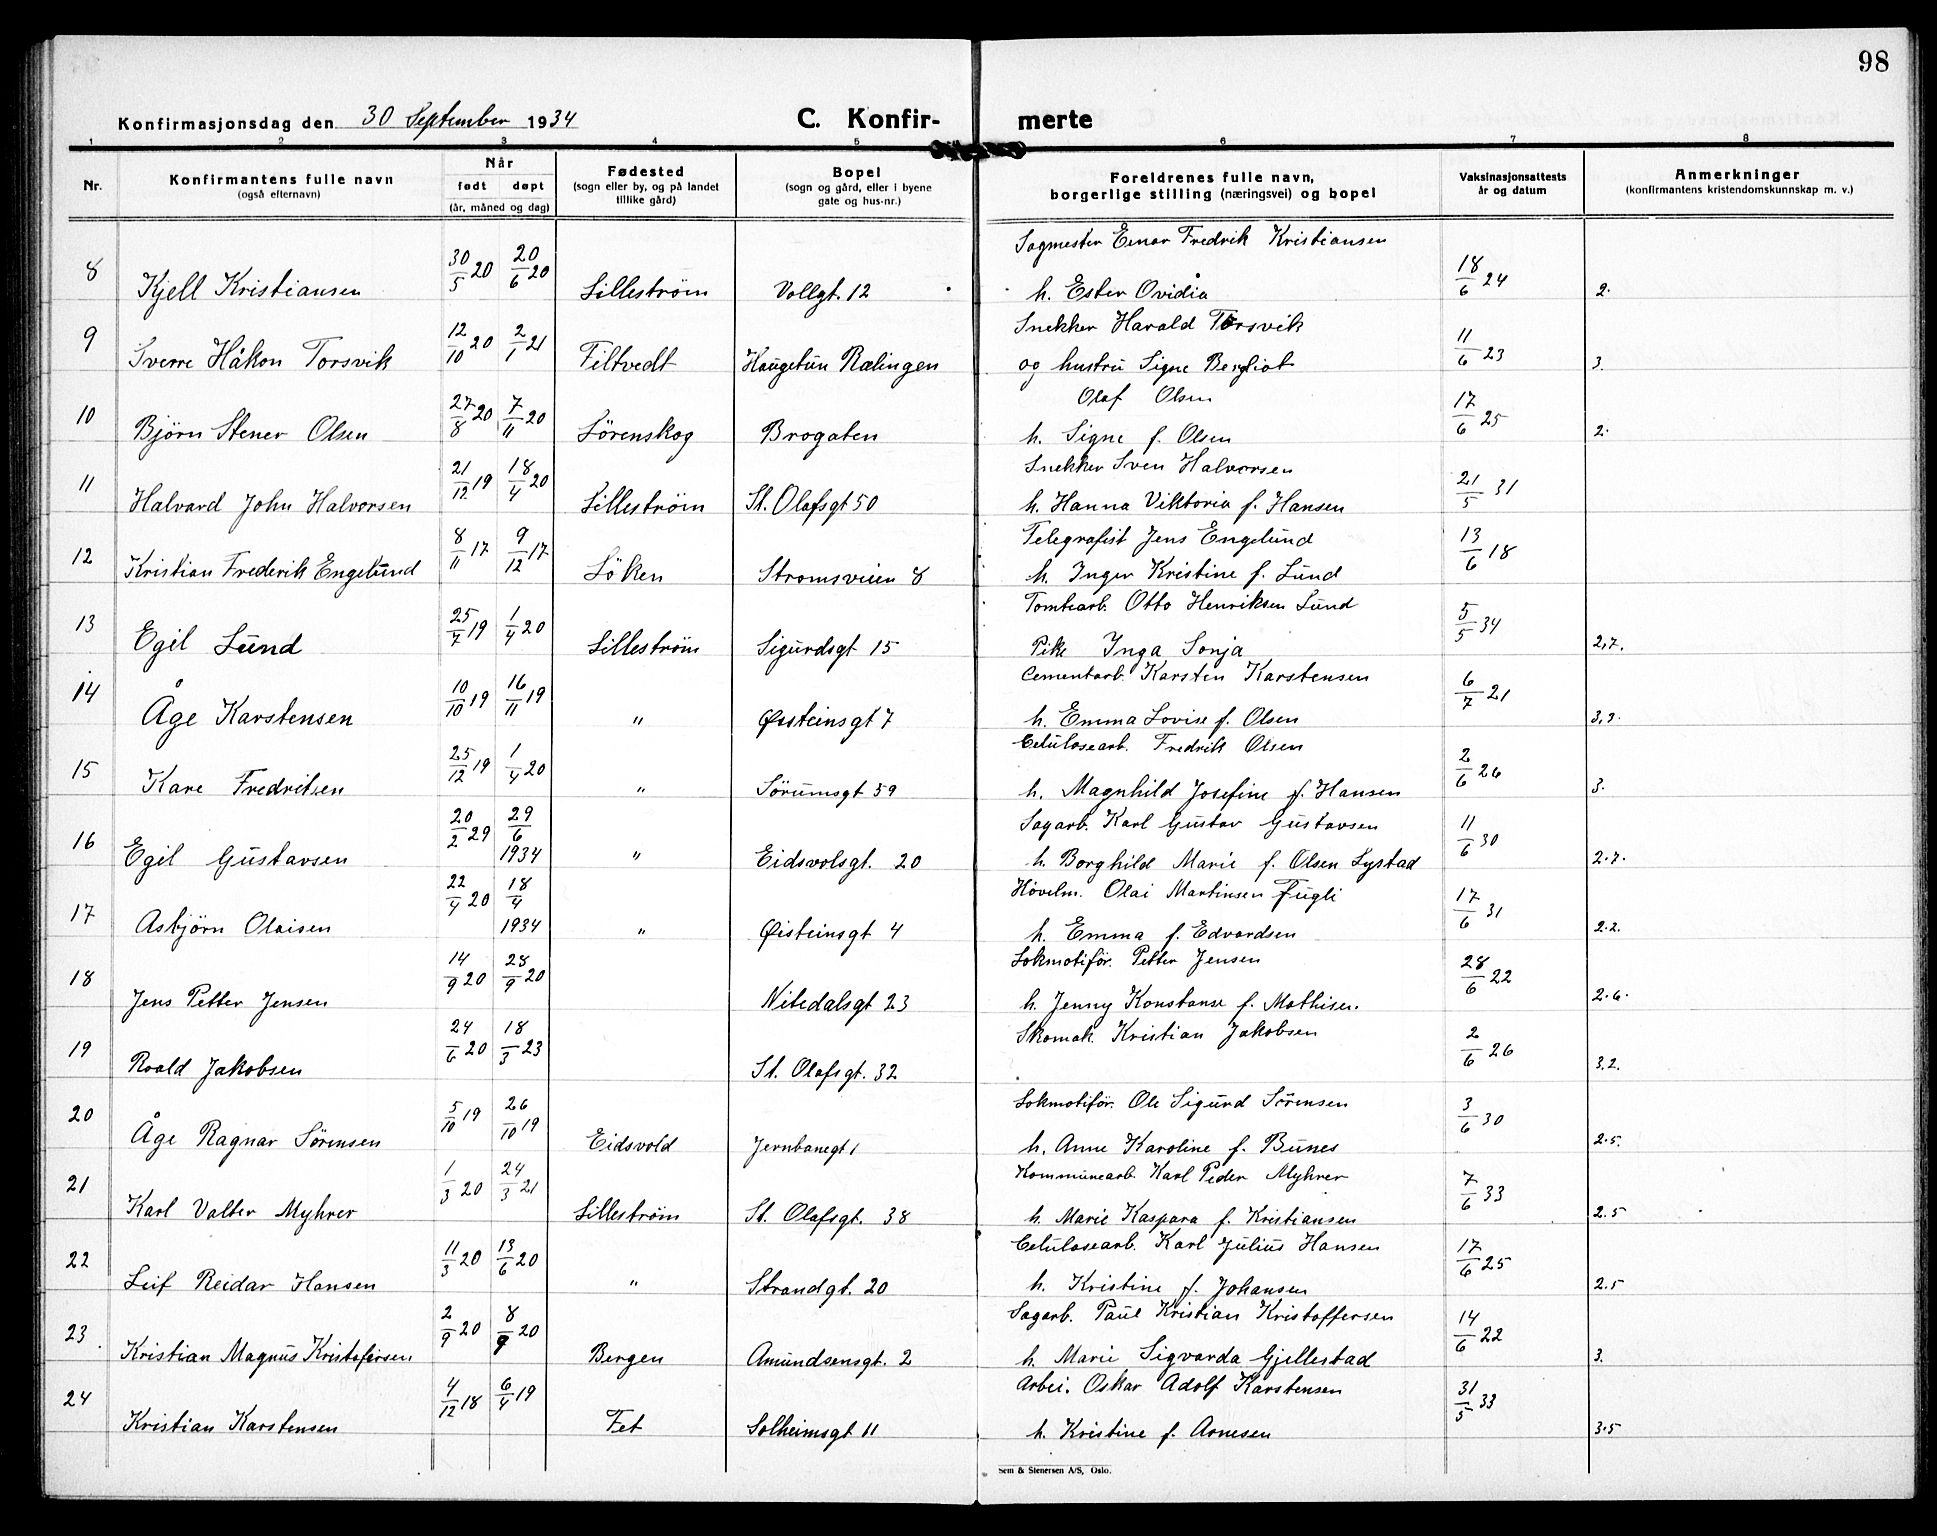 98
Konfirmasjonsdag den 30 September 1934 C. Konfir- merte
1 2 3 4 5 6 7 8
Nr. Konfirmantens fulle navn (også efternavn) Når født døpt (år, måned og dag) Fødested (sogn eller by, og på landet tillike gård) Bopel (sogn og gård, eller i byene gate og hus-nr.) Foreldrenes fulle navn, borgerlige stilling (næringsvei) og bopel Vaksinasjonsattests år og datum Anmerkninger (konfirmantens kristendomskunnskap m. v.)
Sagmester Einar Fredrik Kristiansen
8 Kjell Kristiansen 30/5 20 20/6 20 Lilleström Vollgt. 12 h. Ester Ovidia 18/6 24 2.
Snekker Harald Torsvik
9 Sverre Håkon Torsvik 12/10 20 2/1 21 Filtvedt Haugetun Rælingen og hustru Signe Bergliot 11/6 23 3.
Olaf Olsen
10 Bjørn Stener Olsen 27/8 20 7/11 20 Lörenskog Brogaten h. Signe f. Olsen 17/6 25 2.
Snekker Sven Halvorsen
11 Halvard John Halvorsen 21/12 19 18/4 20 Lilleström St. Olafsgt 50 h. Hanna Viktoria f. Hansen 21/5 31
Telegrafist Jens Engelund
12 Kristian Frederik Engelund 8/11 17 9/12 17 Löken Stromsveien 8 h. Inger Kristine f. Lund 13/6 18
Tomtearb. Otto Henriksen Lund
13 Egil Lund 25/7 19 1/4 20 Lilleström Sigurdsgt 15 Pike Inga Sonja 5/5 34 2,7.
Cementarb. Karsten Karstensen
14 Åge Karstensen 10/10 19 16/11 19 " Øisteinsgt 7 h. Emma Lovise f. Olsen 6/7 21 3,3.
Celulosearb. Fredrik Olsen
15 Kare Fredriksen 25/12 19 1/4 20 " Sörumsgt 59 h. Magnhild Josefine f. Hansen 2/6 26 3.
Sagarb. Karl Gustav Gustavsen
16 Egil Gustavsen 20/2 29 29/6 1934 " Eidsvolsgt. 20 h. Borghild Marie f. Olsen Lystad 11/6 30 2.7.
Hövelm. Olai Martinsen Fugli
17 Asbjörn Olaisen 22/4 20 18/4 1934 " Øisteinsgt 4 h. Emma f. Edvardsen 17/6 31 2.2.
Lokmotiför. Petter Jensen
18 Jens Petter Jensen 14/9 20 28/9 20 Nitedalsgt 23 h. Jenny Konstanse f. Mathisen. 28/6 22 2.6.
Skomak. Kristian Jakobsen
19 Roald Jakobsen 24/6 20 18/3 23 St. Olafsgt. 32 2/6 26 3.2.
Lokmotiför. Ole Sigurd Sörensen
20 Åge Ragnar Sörensen 5/10 19 26/10 19 Eidsvold Jernbanegt 1 h. Anne Karoline f. Bunes 3/6 30 2.5.
Kommunearb. Karl Peder Myhrer
21 Karl Valter Myhrer 1/3 20 24/3 21 Lilleström St. Olafsgt. 38 h. Marie Kaspara f. Kristiansen 7/6 33 2.5
Celulosearb. Karl Julius Hansen
22 Leif Reidar Hansen 11/3 20 13/6 20 " Strandgt. 20 h. Kristine f. Johansen 17/6 25 2.5
Sagarb. Paul Kristian Kristoffersen
23 Kristian Magnus Kristofersen 2/9 20 8/9 20 Bergen Amundsensgt. 2 h. Marie Sigvarda Gjellestad 14/6 22 3.
Arbei. Oskar Adolf Karstensen
24 Kristian Karstensen 4/12 18 6/4 19 Fet Solheimsgt 11 h. Kristine f. Arnesen 31/5 33 3.5
Sem & Stenersen A/S, Oslo.